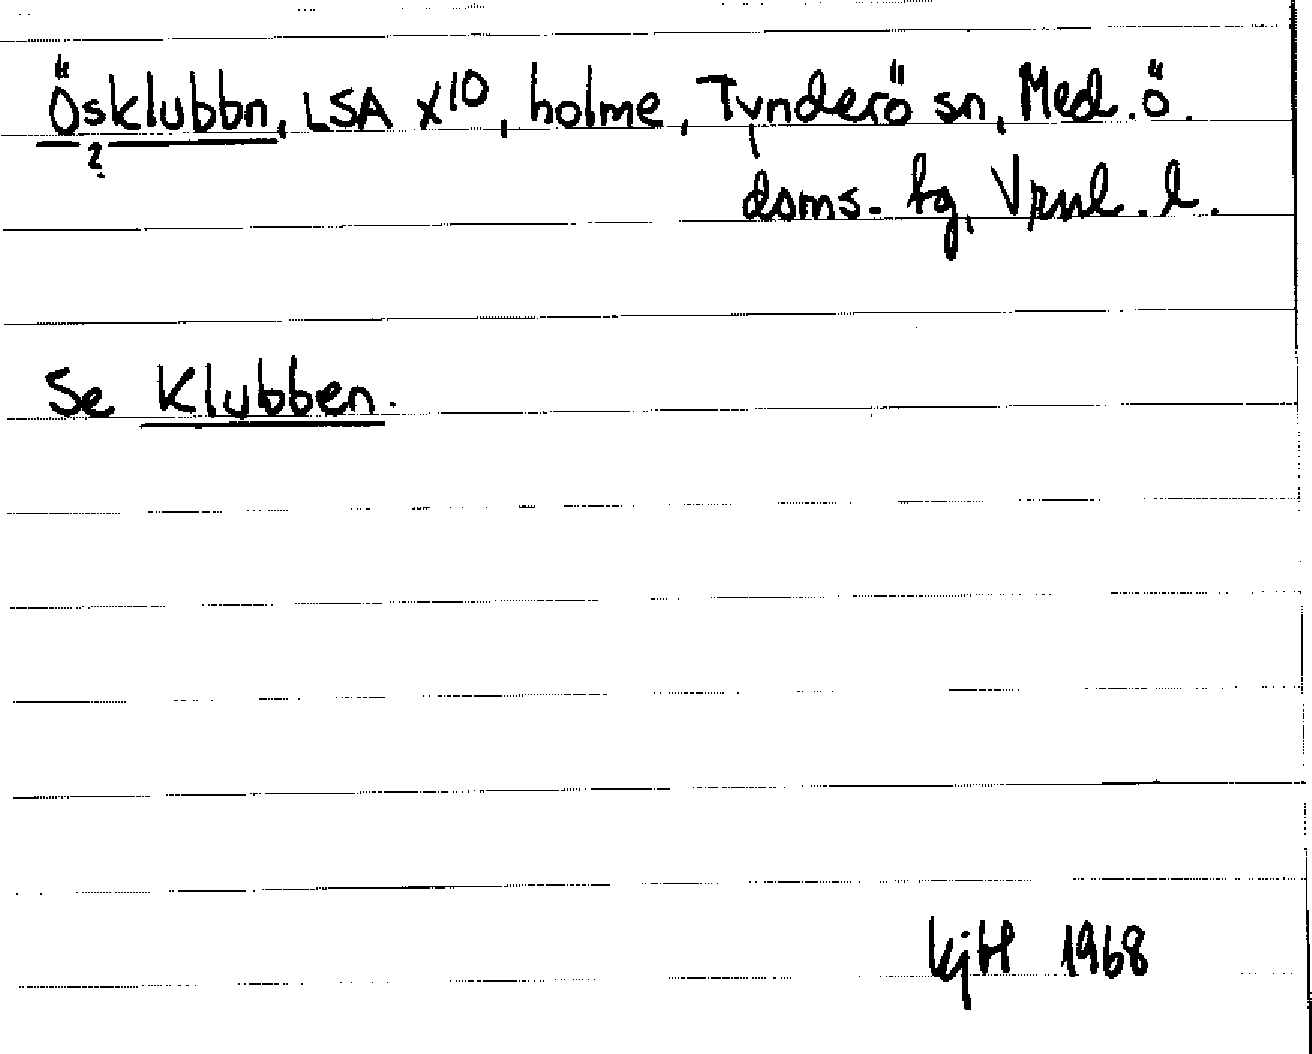 Ösklubbn, LSA X10, holme, Tynderö sn, Med. ö.
?
doms. tg, Vrnl. l.
Se Klubben.
KjH 1968